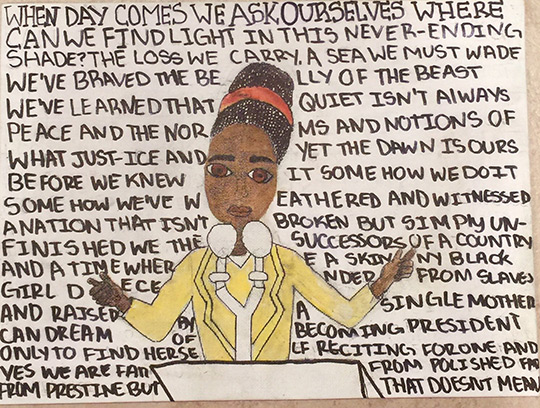 WHEN DAY COMES WE ASK OURSELVES WHERE
CAN WE FIND LIGHT IN THIS NEVER-ENDING
SHADE? THE LOSS WE CARRY, A SEA WE MUST WADE
WE'VE BRAVED THE BE LLY OF THE BEAST
WE'VE LEARNED THAT QUIET ISN'T AlWAYS
PEACE AND THE NOR MS AND NOTIONS OF
WHAT JUST-ICE AND YET THE DAWN IS OURS
BEFORE WE KNEW IT SOME HOW WE DO IT
SOME HOW WE'VE W EATHERED AND WITNESSED
A NATION THAT ISN'T BROKEN BUT SIMPlY UN-
FINISHED WE THE SUCCESSORS OF A COUNTRY
AND A TIME WHER E A SKIN NY BLACK
GIRL D ECE NDER FROM SLAVES
AND RAISED BY A SINGLE MOTHER
CAN DREAM OF BECOMING PRESIDENT
ONLY TO FIND HERSE LF RECITING FOR ONE AND
YES WE ARE FAR FROM POLISHED FAR
FROM PRESTINE BUT THAT DOESN'T MEAN